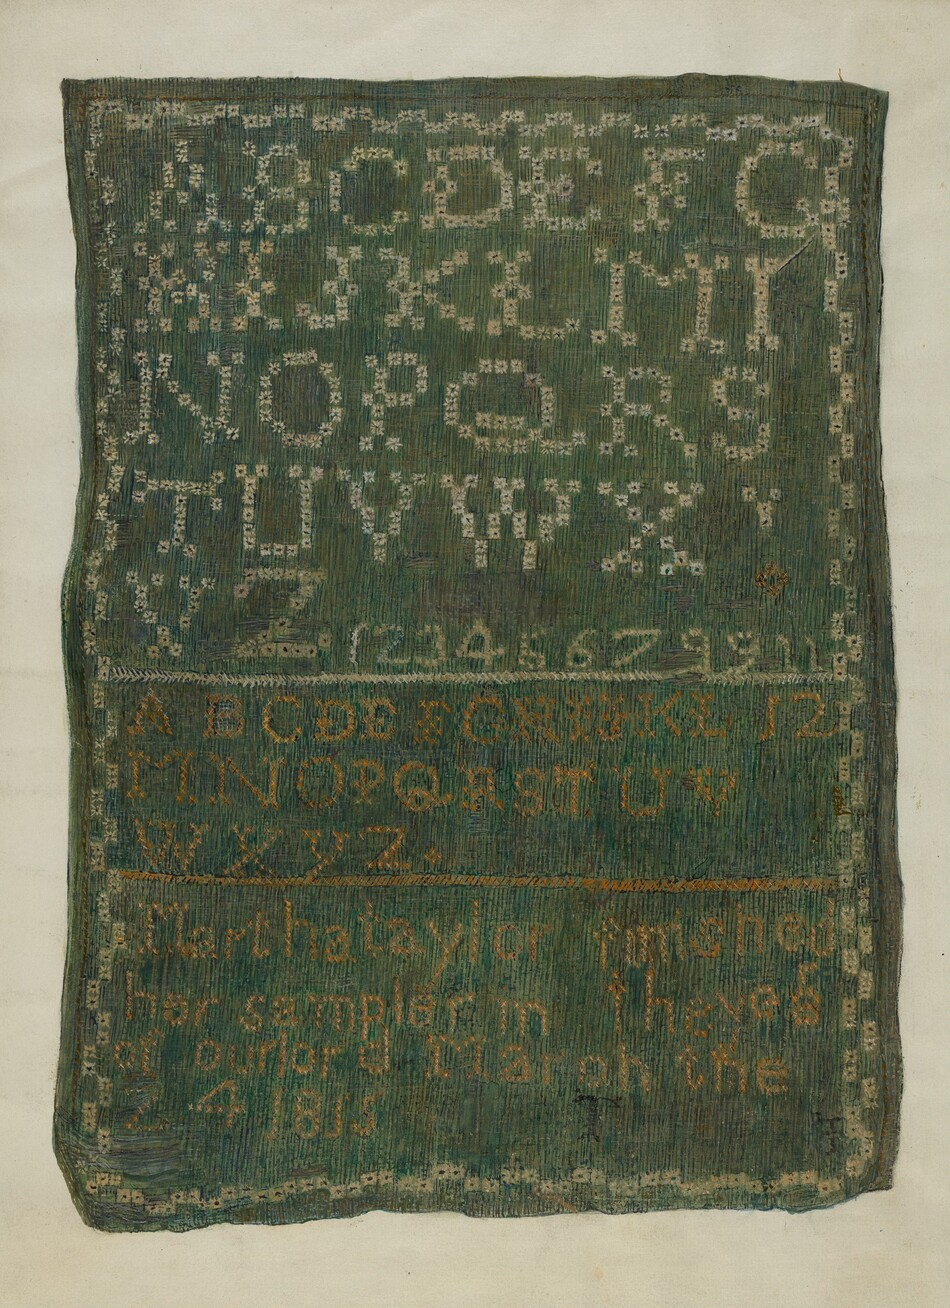 A B C D E F G
H I J K L M I
N O P Q R S
T U V W X Y
Y Z 1 2 3 4 5 6 7 8 9 11
A B C D E F G H I J K L 12
M N O P Q R S T U V
W X Y Z.
Martha taylor finished
her sampler in the yes
of our lord March the
24 1815